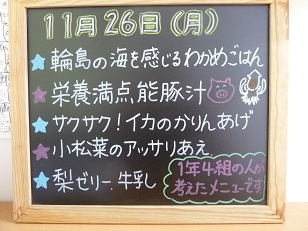 11月26日(月)
輪島の海を感じるわかめごはん
栄養満点能豚汁
サクサク!イカのかりんあげ
小松菜のアッサリあえ
梨ゼリー 牛乳
1年4組の人が
考えたメニューです